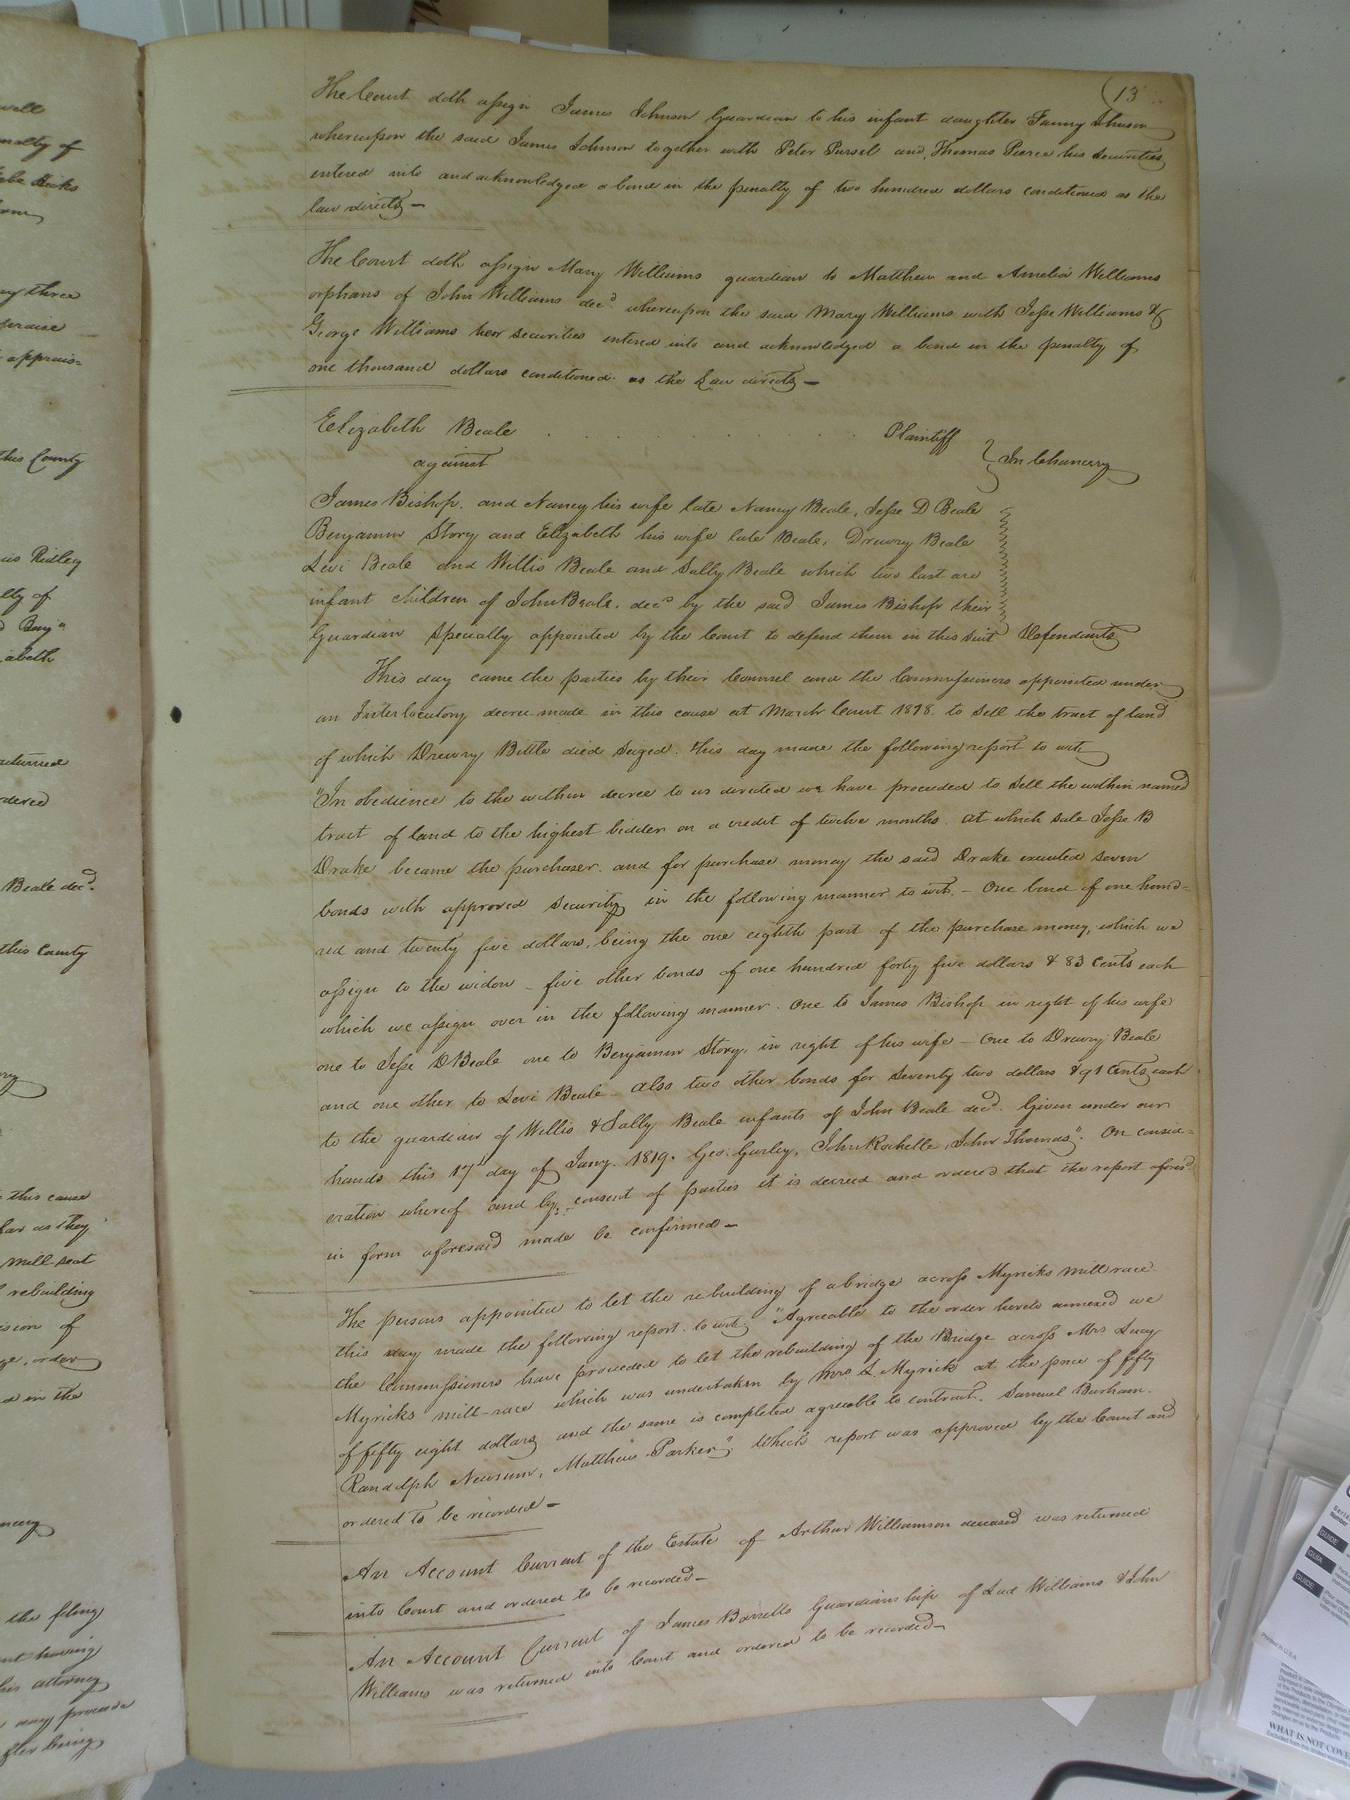 13
The Court doth assign James Johnson Guardian to his infant daughter Fanny Johnson
whereupon the said James Johnson together with Peter Pursel and Thomas Pearce his securities
entered into and acknowledged a bond in the penalty of two hundred dollars conditioned as the
law directs —
The Court doth assign Mary Williams guardian to Matthew and Amelia Williams
orphans of John Williams decd. whereupon the said Mary Williams with Jesse Williams &
George Williams her securities entered into and acknowledged a bond in the penalty of
one thousand dollars conditioned as the Law directs —
Elizabeth Beale . . . . . . . . . Plaintiff
against
In Chancery
James Bishop. and Nancy his wife late Nancy Beale, Jesse D Beale
Benjamin Story and Elizabeth his wife late Beale, Drewry Beale
Levi Beale and Willis Beale and Sally Beale which two last are
infant children of John Beale. decd by the said James Bishop their
Guardian specially appointed by the Court to defend them in this suit Defendants
This day came the parties by their Counsel and the Commissioners appointed under
an Interlocutory decree made in this cause at March Court 1818. to sell the tract of land
of which Drewry Bittle died seized. this day made the following report to wit,
"In obedience to the within decree to us directed we have proceeded to sell the within named
tract of land to the highest bidder on a credit of twelve months. at which sale Jesse B
Drake became the purchaser. and for purchase money the said Drake executed seven
bonds with approved security in the following manner to wit. – One bond of one hund-
red and twenty five dollars, being the one eighth part of the purchase money, which we
assign to the widow – five other bonds of one hundred forty five dollars & 83 Cents each
which we assign over in the following manner. One to James Bishop in right of his wife
one to Jesse D Beale one to Benjamin Story, in right of his wife – One to Drewry Beale
and one other to Levi Beale – also two other bonds for seventy two dollars & 91 Cents each
to the guardian of Willis & Sally Beale infants of John Beale decd. Given under our
hands this 17 day of Jany. 1819. Geo: Gurley, John Rochelle, John Thomas". On consid-
eration whereof and by consent of parties it is decreed and ordered that the report afores
in form aforesaid made be confirmed —
The persons appointed to let the rebuilding of a bridge across Myricks mill race
this day made the following report. to wit, "Agreeable to the order hereto annexed we
the Commissioners have proceeded to let the rebuilding of the Bridge across Mrs Lucy
Myricks mill-race which was undertaken by Mrs L. Myrick at the price of fifty
of fifty eight dollars and the same is completed agreeable to contract. Samuel Barham.
Randolph Newsum, Matthew Parker", Which report was approved by the Court and
ordered to be recorded —
An Account Current of the Estate of Arthur Williamson deceased was returned
into Court and ordered to be recorded —
An Account Current of James Barretts Guardianship of Williams & John
Williams was returned into Court and ordered to be recorded —